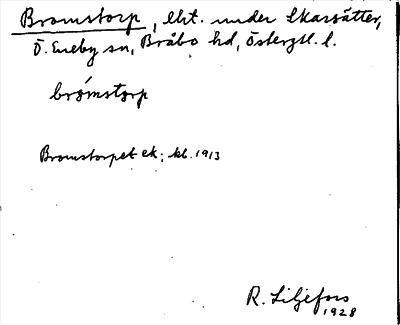 Bromstorp, lht. under Skarsätter,
Ö. Eneby sn, Bråbo hd, Östergtl. l.
brómstorp
Bromstorpet ek; kb. 1913
R. Liljefors
1928